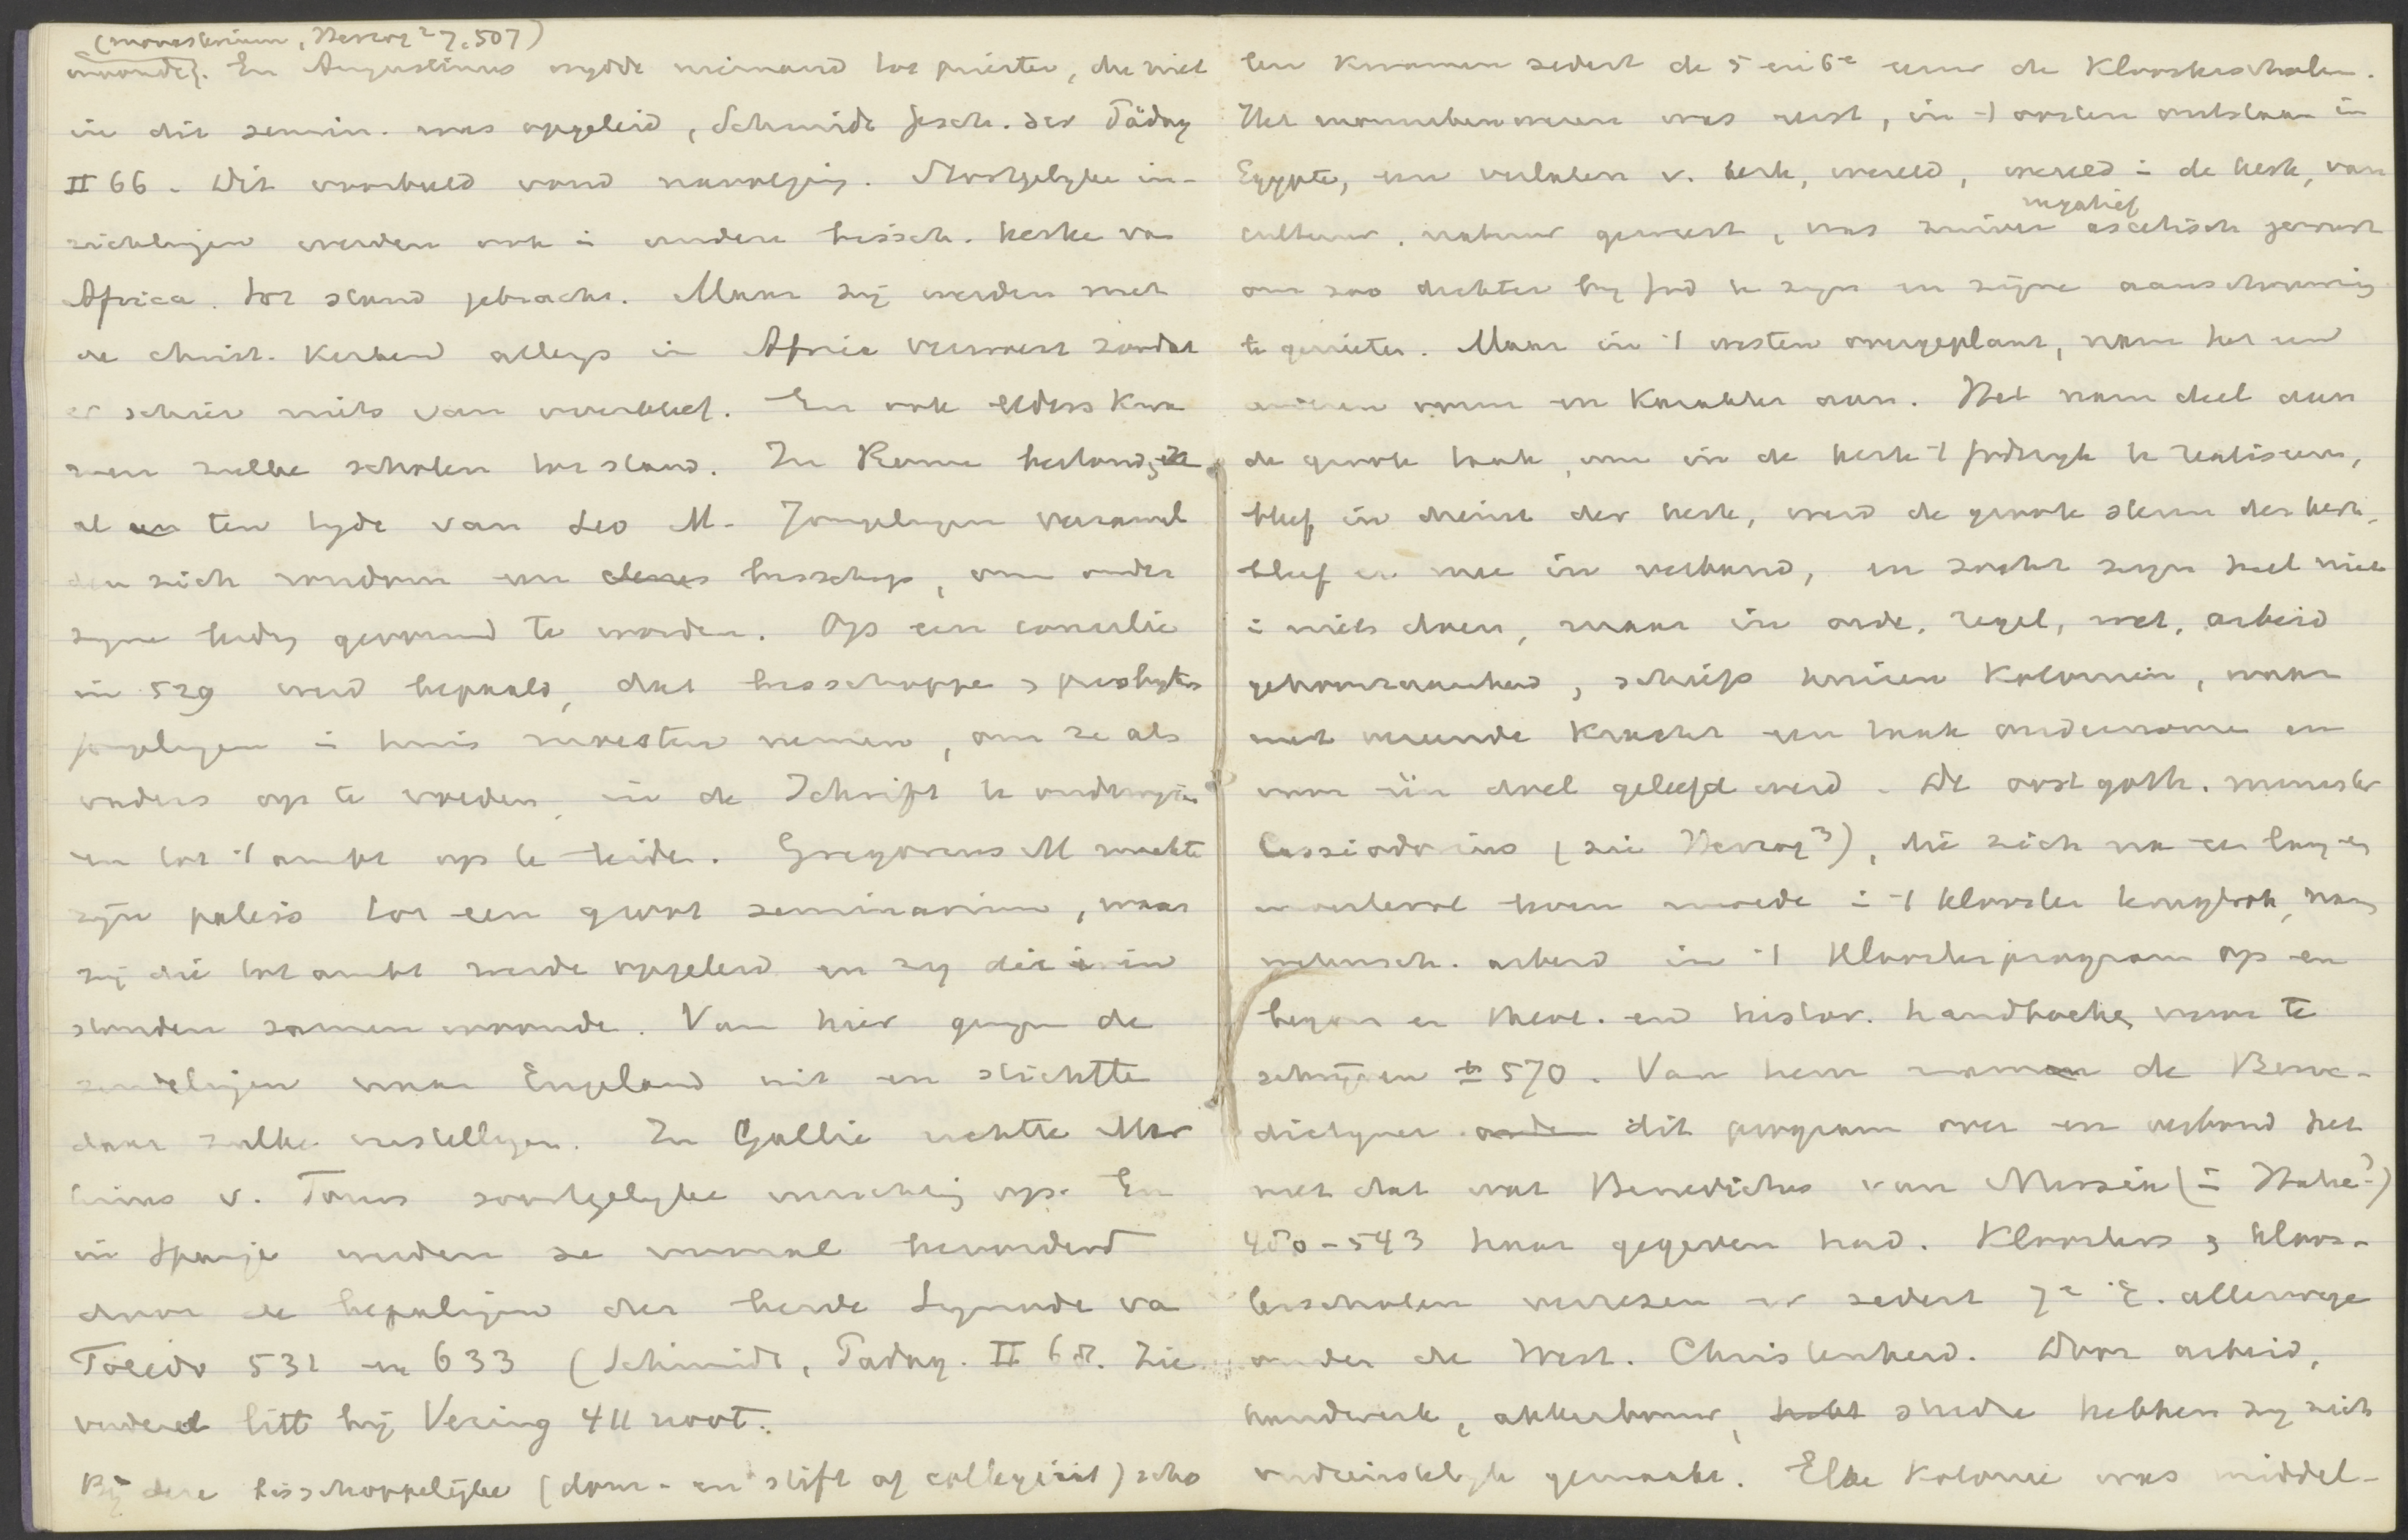 (monasterium, Herzog² 7, 507)
woonde). En Augustinus wijdde niemand tot priester, die niet
in dit semin. was opgeleid, Schmidt Gesch. der Pädag
II 66. Dit voorbeeld vond navolging. Soortgelijke in-
richtingen werden ook i andere bissch. kerke van
Africa tot stand gebracht. Maar zij werden met
de christ. kerken allengs in Africa verwoest zoodat
er schier niets van overbleef. En ook elders kwa
men zulke scholen tot stand. In Rome bestond ze
al ten tijde van Leo M. Jongelingen verzamel
den zich rondom een bisschop, om onder
zijne leiding gevormd te worden. Op een concilie
in 529 werd bepaald, dat bisschoppe & presbyters
jongelingen i huis moesten nemen, om ze als
vaders op te voeden, in de Schrift te onderwijzen
en tot 't ambt op te leiden. Gregorius M maakte
zijn paleis tot een groot seminarium, waar
zij die tot ambt werde opgeleid en zij die er in
stonden samen woonde. Van hier gingen de
zendelingen naar Engeland uit en stichtte
daar zulke instellingen. In Gallie richtte Mar
tinus v. Tours soortgelijke inrichting op. En
in Spanje werden ze vooral bevorderd
door de bepalingen der beide Synode va
Toledo 531 en 633 (Schmidt, Padag. II 68. Zie
verder litt bij Vering 411 noot.
Bij deze bisschoppelijke (dom- en stift of collegiaat) scho
len kwamen sedert de 5 en 6e eeuw de Kloosterscholen.
Het monnikenwezen was eerst, in 't oosten ontstaan in
Egypte, een verlaten v. kerk, wereld, wereld i de kerk, van
cultuur, natuur geweest, was zuiver negatief ascetisch gericht
om zoo dichter bij God te zijn en zijne aanschouwing
te genieten. Maar in 't westen overgeplant, nam het een
anderen vorm en karakter aan. Het nam deel aan
de groote taak, om in de kerk 't Godsrijk te realiseeren,
bleef in dienst der kerk, werd de groote steun der kerk,
bleef er mee in verband, en zocht zijn heil niet
i niets doen, maar in orde, regel, wet, arbeid
gehoorzaamheid, schiep kolonien, waar
met vereende kracht een taak ondernomen en
voor één doel geleefd werd. De oostgoth. minister
Cassiodorius (zie Herzog³), die zich na een lang en
leven i 't klooster terugtrok, nam
wetensch. arbeid in 't kloosterprogram op en
begon er theol. en histor. handboeken voor te
schrijven ± 570. Van hem namen de Bene-
dictijner dit program over en verbond het
met dat wat Benedictus van Nursia (i Italie)
480-543 haar gegeven had. Kloosters & kloos-
terscholen verrezen er sedert 7e E. allerwege
onder de West. Christenheid. Door arbeid,
handwerk, akkerbouw, studie hebben zij zich
verdienstelijk gemaakt. Elke kolonie was middel-